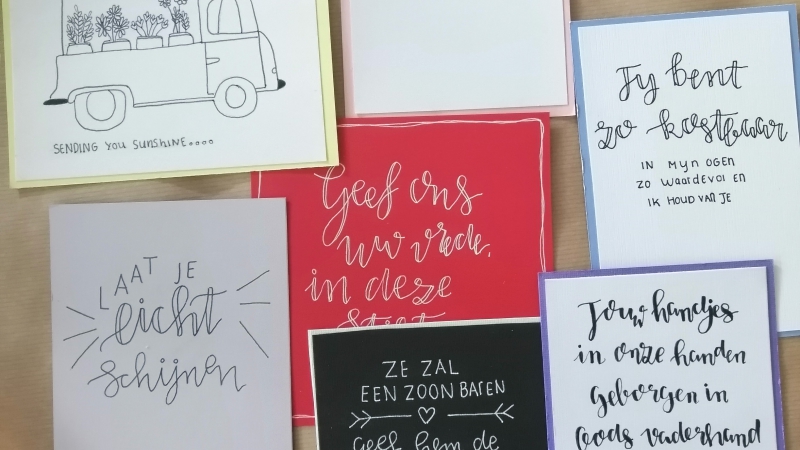 SENDING YOU SUNSHINE....
Jij bent
zo kostbaar
IN MIJN OGEN
ZO WAARDEVOL EN
IK HOUD VAN JE
Geef ons
uw vrede,
in deze
LAAT JE
licht
schijnen
ZE ZAL
EEN ZOON BAREN
geef hem de
Jouw handjes
in onze handen
geborgen in
Gods vaderhand